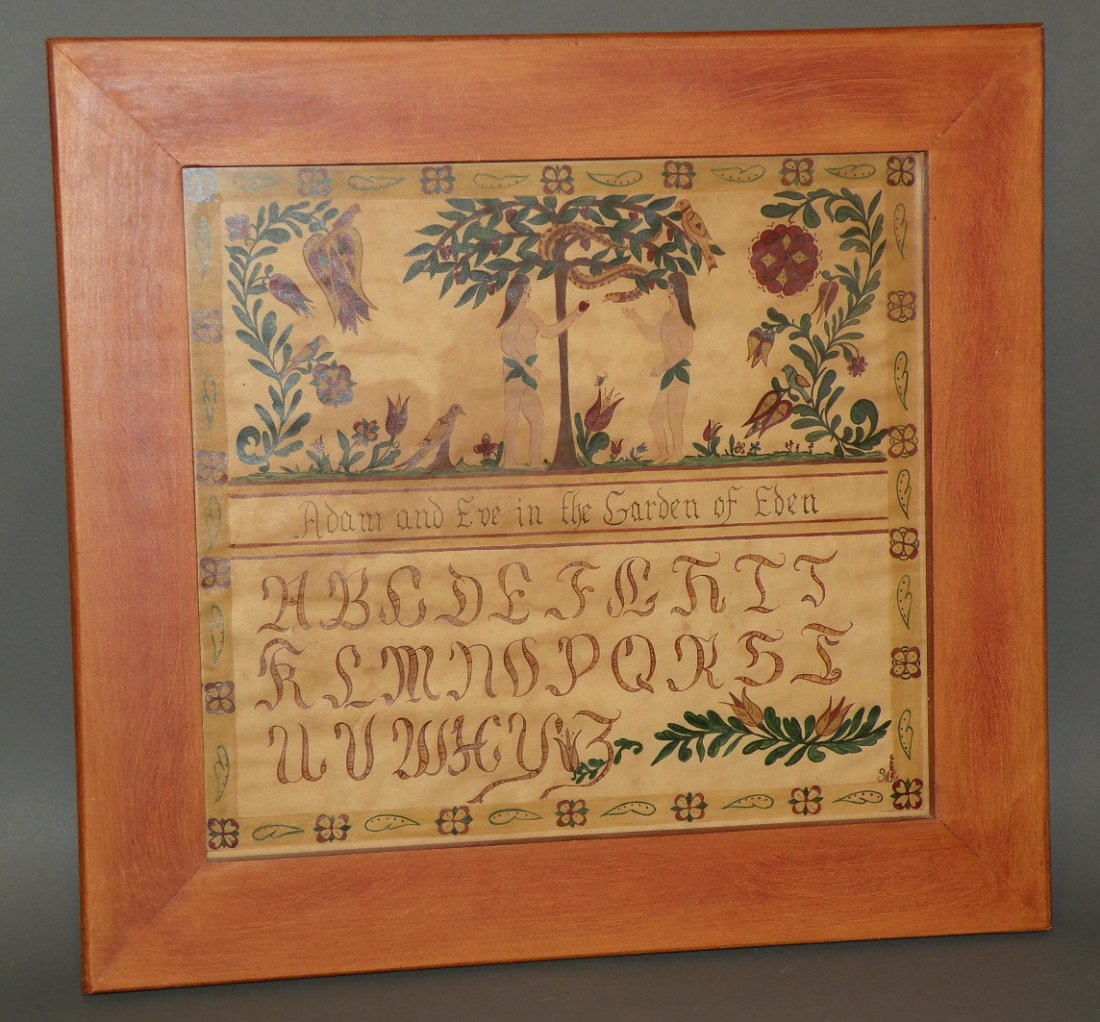 Adam and Eve in the Garden of Eden
A B C D E F G H I J
K L M N O P Q R S T
U V W X Y Z